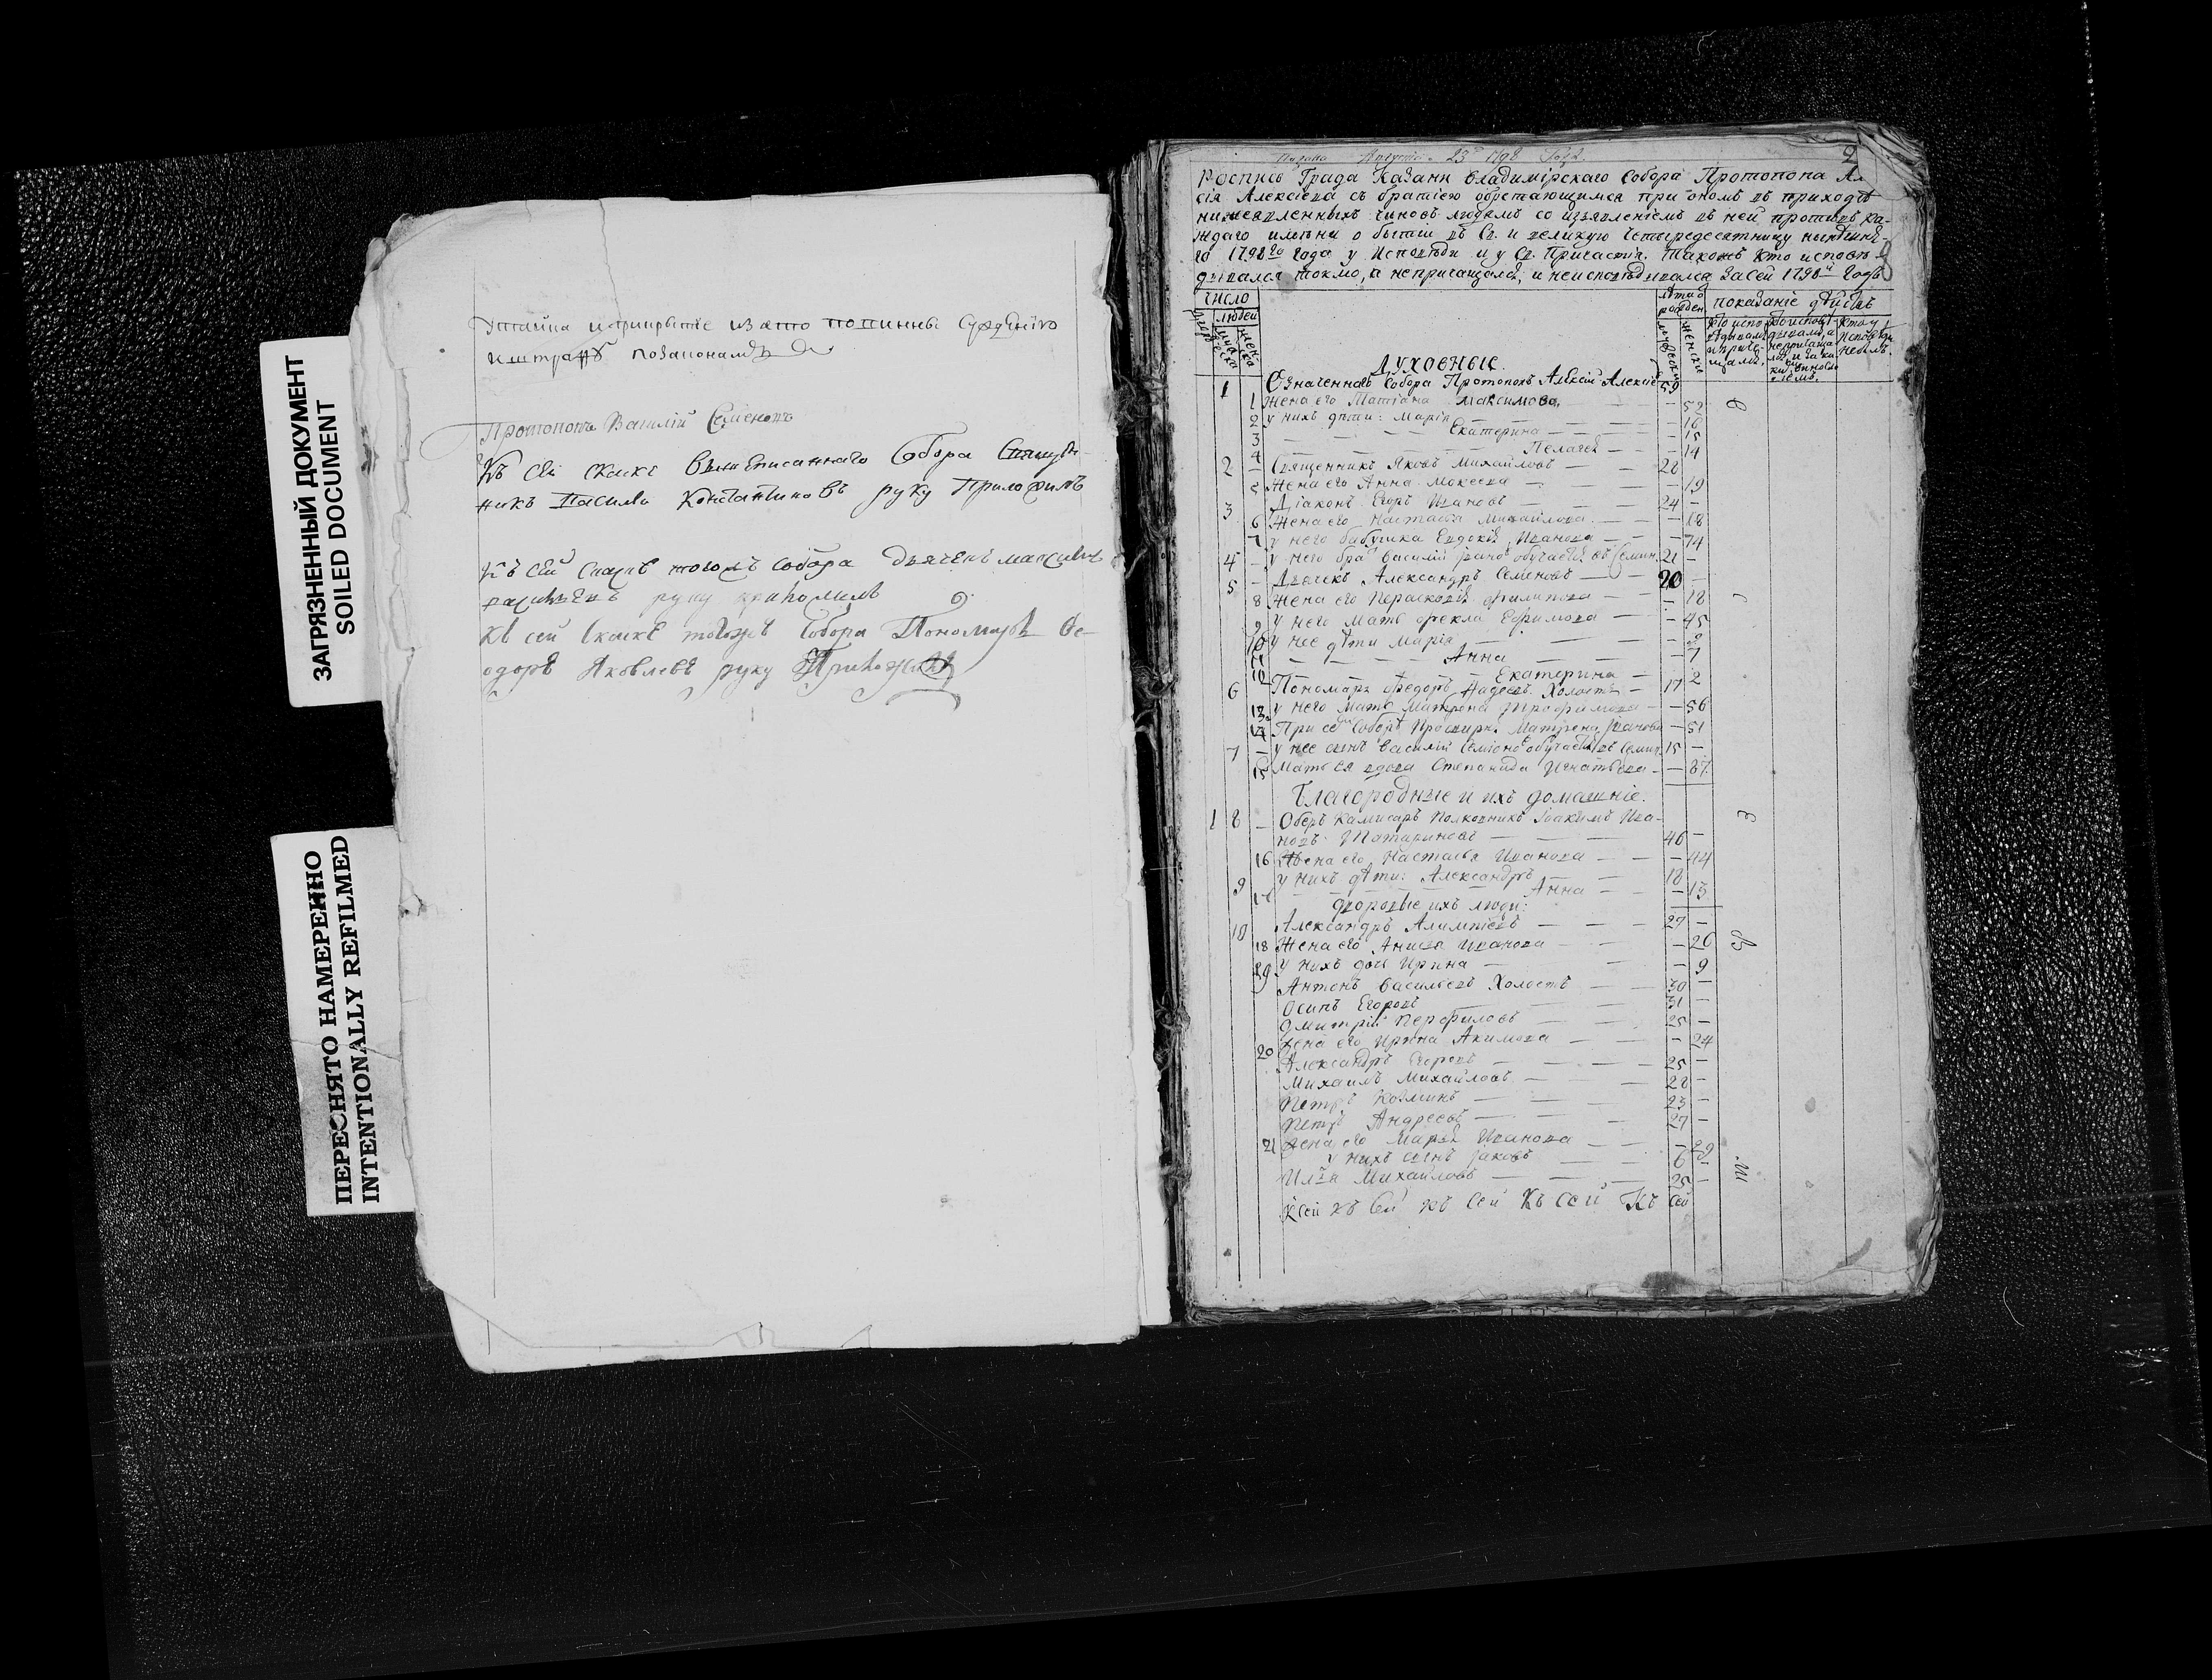 ЗАГРЯЗНЕННЫЙ ДОКУМЕНТ
SOILED DOCUMENT
ПЕРЕСНЯТО НАМЕРЕННО
INTENTIONALLY REFILMED
утайка и прикрытие из ято повинны
и штрафу позаконамъ
Протопопъ Василiй Семеновъ
Къ сей скаске вышеписаннаго Собора Священ
никъ Василей Константиновъ руку Приложилъ
Къ сей скаске тогожъ собора дьячекъ максимъ
руку приложилъ
къ сей скаске тогожъ Собора Пономарь Фе-
одоръ Яковлевъ руку Приложилъ
Августа 23 1798 Года
2
Роспись Града Казани Владимiрскаго Собора Протопопа Але
ѯiя Алексiева съ братiею обретающимся при ономъ въ приходѣ
нижеявленныхъ чиновъ людемъ со изъявленiемъ въ ней противъ ка-
ждаго имени о бытiи въ Св. и великую Четыредесятницу нынѣшня-
го 1798го года у Исповѣди и у Св. Причастiя. Такожъ кто исповѣ-
дывался токмо, а непричащался, и неисповѣдывался Засей 1798й Годъ
число
людей
лѣта о
рожден.
показанiе дѣйствъ
ДУХОВНЫЕ
1 Означеннаго Собора Протопопъ Алексiй Алексiе
1 Жена его Матiана Максимова — 52
2 у нихъ дѣти: Марiя — 16
3 Екатерина — 15
4 Пелагея — 14
2 — Священникъ Яковъ Михайловъ — 28
5 Жена его Анна Мокеева — 19
3 Дiаконъ Егоръ Ивановъ — 24 —
6 Жена его Настасья Михайлова — 18
7 у него бабушка Евдокiя Иванова — 74
4 — у него братъ Василiй Ивановъ обучается въ Семин. 21 —
5 — Дьячекъ Александръ Семеновъ — 20 —
8 Жена его Перасковiя Филипова — 18
9 у него Мать Фекла Ефимова — 45
10 у нее дѣти Марiя — 9
11 Анна — 7
12 Екатерина — 2
6 Пономарь Федоръ Фадеевъ Холостъ — 17
13 у него Мать Матрена Трофимова — 56
14 При семъ Соборѣ Просвирня Матрена Иванова — 51
7 — у нее сынъ Василiй Семеновъ обучается въ Семин. 15 —
15 Мать ея вдова Степанида Игнатьева — 87
Благородные и ихъ домашнiе.
1 8 — Оберъ Камисаръ Полковникъ Iоакимъ Ива-
новъ Татариновъ — 46 —
16 Жена его Настасья Иванова — 44
9 у нихъ дѣти: Александръ — 18
17 Анна — 13
дворовые ихъ люди:
10 Александръ Алимпiевъ — 27 —
18 Жена его Анисья Иванова — 26
19 у нихъ дочь Ирина — 9
Антонъ Васильевъ Холостъ — 30 —
Осипъ Егоровъ — 31 —
Дмитрiй Перфиловъ — 25 —
20 Жена его Ирина Акимова — 24
Александръ Егоровъ — 25 —
Михаилъ Михайловъ — 28 —
Петръ Козминъ — 23 —
Петръ Андреевъ — 27 —
21 Жена его Марья Иванова — 29
у нихъ сынъ Iаковъ — 6 —
Илья Михайловъ — 25 —
Ксей къ Сей къ Сей Къ Сей Къ Сей